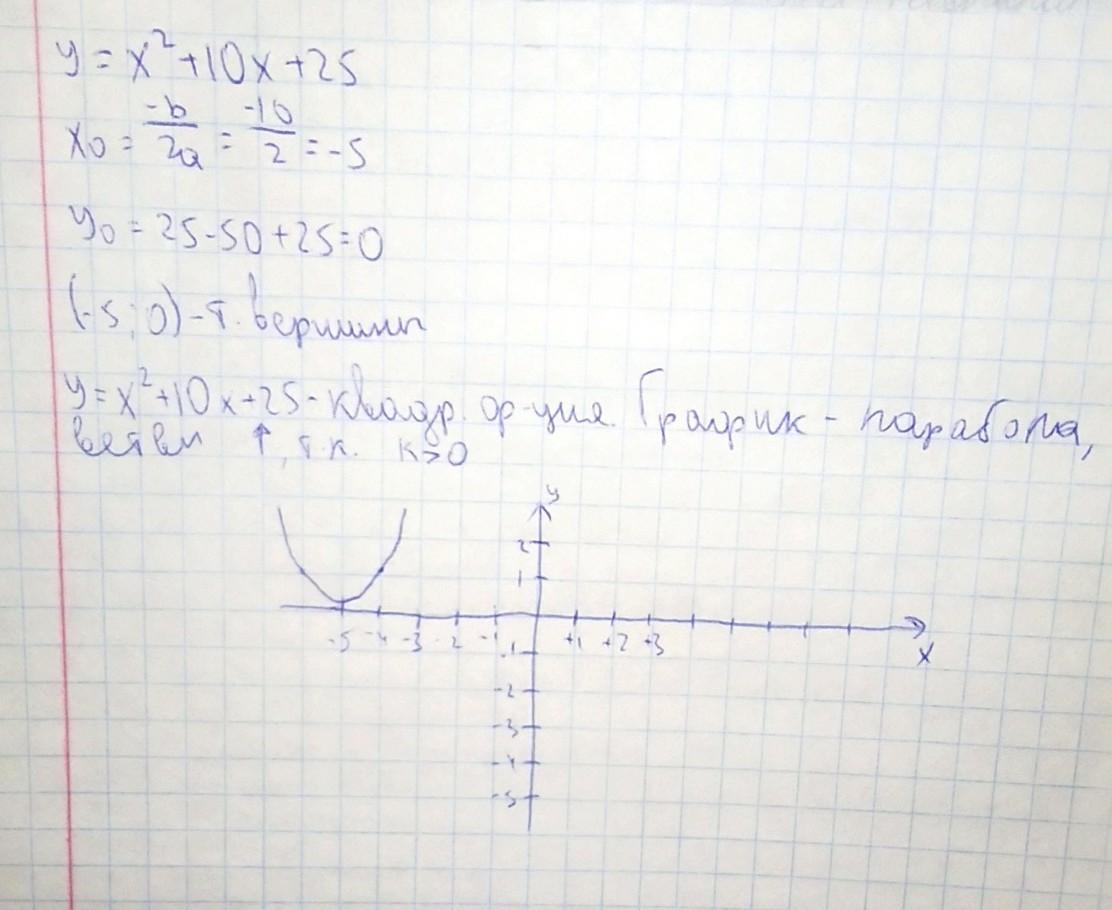 y = x²+10x+25
x0 = -b/2a = -10/2 = -5
y0 = 25-50+25=0
(-5; 0) - т. вершины
y=x²+10x+25 - квадр. ф-ция. График - парабола,
ветви ↑, т.к. к>0
y
2
1
-5 -4 -3 -2 -1 +1 +2 +3
x
-1
-2
-3
-4
-5